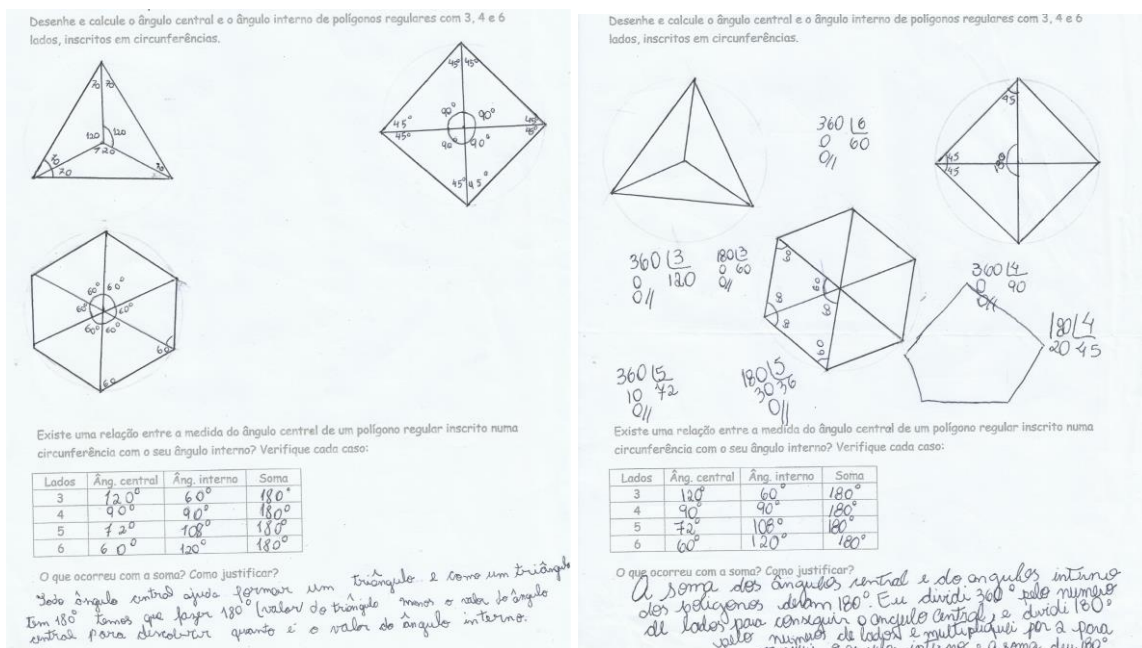 Desenhe e calcule o ângulo central e o ângulo interno de polígonos regulares com 3, 4 e 6
lados, inscritos em circunferências.
45° 45°
90° 90°
45°
45°
90° 90°
45° 45°
120 120
60° 60°
60° 60°
60° 60°
60
60
Existe uma relação entre a medida do ângulo centrel de um polígono regular inscrito numa
circunferência com o seu ângulo interno? Verifique cada caso:
Lados Âng. central Âng. interno Soma
3 120° 60° 180°
4 90° 90° 180°
5 72° 108° 180°
6 60° 120° 180°
O que ocorreu com a soma? Como justificar?
Todo ângulo central ajuda formar um triângulo e como um triângulo
tem 180° temos que fazer 180° (valor do triângulo menos o valor do ângulo
central para descobrir quanto é o valor do ângulo interno.
Desenhe e calcule o ângulo central e o ângulo interno de polígonos regulares com 3, 4 e 6
lados, inscritos em circunferências.
360 6
0 60
0//
45
45
45
360 3
0 120
0//
180 3
0 60
0//
60
60
360 4
0 90
0//
180 4
20 45
360 5
10 72
0//
180 5
30 36
0//
Existe uma relação entre a medida do ângulo central de um polígono regular inscrito numa
circunferência com o seu ângulo interno? Verifique cada caso:
Lados Âng. central Âng. interno Soma
3 120° 60° 180°
4 90° 90° 180°
5 72° 108° 180°
6 60° 120° 180°
O que ocorreu com a soma? Como justificar?
A soma dos ângulos central e do angulos interno
dos polígonos deram 180°. Eu dividi 360° pelo numero
de lados para conseguir o angulo central, e dividi 180°
pelo numero de lados e multipliquei por 2 para
interno e a soma deu 180°